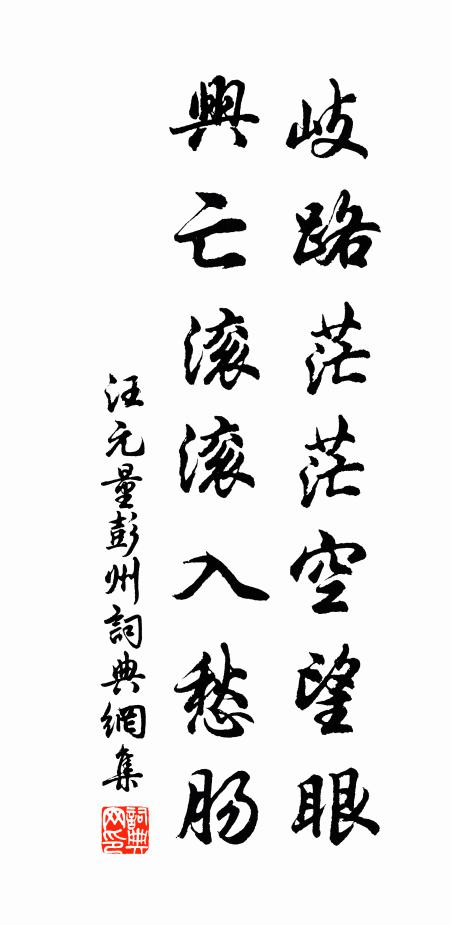 岐路茫茫空望眼
興亡滚滚入愁肠
汪元量彭州詞典網集
詞典网印